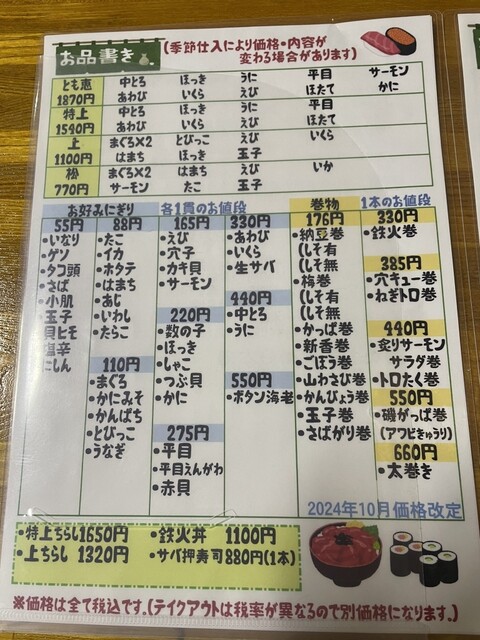 お品書き
(季節仕入により価格・内容が
変わる場合があります)
とも恵 1870円
中とろ ほっき うに 平目 サーモン
あわび いくら えび ほたて かに
特上 1540円
中とろ ほっき うに 平目
あわび いくら えび ほたて
上 1100円
まぐろ×2 とびっこ えび いくら
はまち ほっき 玉子
松 770円
まぐろ×2 はまち えび いか
サーモン たこ 玉子
お好みにぎり 各1貫のお値段
55円
・いなり
・ゲソ
・タコ頭
・さば
・小肌
・玉子
貝ヒモ
塩辛
にしん
88円
・たこ
・イカ
・ホタテ
・はまち
・あじ
・いわし
・たらこ
110円
・まぐろ
・かにみそ
・かんぱち
・とびっこ
・うなぎ
165円
・えび
・穴子
・カキ貝
・サーモン
220円
・数の子
・ほっき
・しゃこ
・つぶ貝
・かに
275円
・平目
・平目えんがわ
・赤貝
330円
・あわび
・いくら
・生サバ
440円
・中とろ
・うに
550円
・ボタン海老
巻物 1本のお値段
176円
・納豆巻
(しそ有
(しそ無
・梅巻
(しそ有
(しそ無
・かっぱ巻
・新香巻
・ごぼう巻
・山わさび巻
・かんぴょう巻
・玉子巻
・さばがり巻
330円
・鉄火巻
385円
・穴キュー巻
・ねぎトロ巻
440円
・炙りサーモン
サラダ巻
・トロたく巻
550円
・磯がっぱ巻
(アワビきゅうり)
660円
・太巻き
2024年10月価格改定
・特上ちらし1650円 ・鉄火丼 1100円
・上ちらし 1320円 ・サバ押寿司880円(1本)
※価格は全て税込です。(テイクアウトは税率が異なるので別価格になります。)